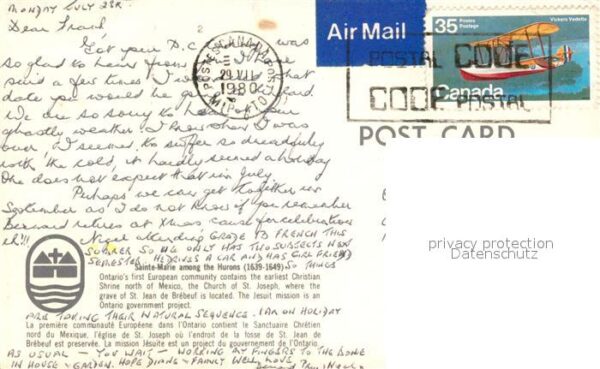 MONDAY JULY 28th.
Dear Frank!
Got your P.C. was
so glad to hear from
said a few times I that
date you would be
We are so sorry to hear your
ghastly weather. I know when I was
over I seemed to suffer so dreadfully
with the cold, it hardly seemed a holiday
One does not expect that in July.
Perhaps we can get together in
September as I do not know if you remember
Bernard retires at Xmas cause for celebration
eh!!! Nigel attending GRADE 13 FRENCH THIS
SUMMER SO HE ONLY HAS TWO SUBJECTS NEXT
SEMESTER. HE DRIVES A CAR AND HAS GIRL FRIEND
SO THINGS
Sainte-Marie among the Hurons (1639-1649)
Ontario's first European community contains the earliest Christian
Shrine north of Mexico, the Church of St. Joseph, where the
grave of St. Jean de Brébeuf is located. The Jesuit mission is an
Ontario government project.
ARE TAKING THEIR NATURAL SEQUENCE. I AM ON HOLIDAY
La première communauté Européene dans l'Ontario contient le Sanctuaire Chrétien
nord du Mexique, l'église de St. Joseph où l'endroit de la fosse de St. Jean de
Brébeuf est préservée. La mission Jésuite est un project du gouvernement de l'Ontario.
AS USUAL — YOU WAIT — WORKING MY FINGERS TO THE BONE
IN HOUSE & GARDEN. HOPE DIANE & FAMILY WELL. LOVE
Air Mail
35 Postes
Postage
Vickers Vedette
Canada
POSTES CANADA POST
29 VII
1980
MIPPTO
POSTAL CODE
CODE POSTAL
POST CARD
privacy protection
Datenschutz